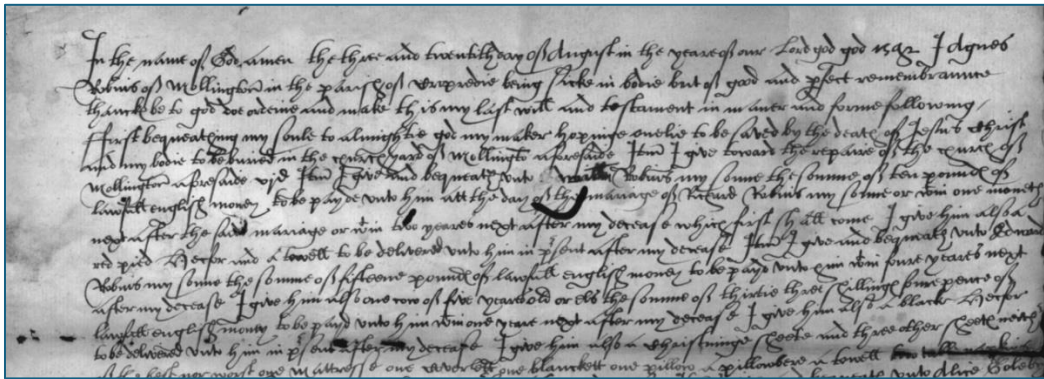 In the name of God amen the three and twentith day of August in the yeare of our Lord god god 1592 I Agnes
Robins of Mollington in the parish of Cropredie being sicke in bodie but of good and pfect remembrannce
thanckes be to god doe ordeine and make this my last will and testament in maner and forme following
ffirst bequeathing my soule to almightie god my maker hopinge onelie to be saved by the death of Jesus Christ
and my bodie to be buried in the church yard of Mollingto aforesaide Itm I give toward the repaire of the church of
Mollington aforesaide vjd Itm I give and bequeath unto Robins my sonne the somme of ten pound of
lawfull english money to be payde unto him att the day of the mariage of Robins my sonne or wthin one moneth
next after the said mariage or wthin two yeares next after my decease which first shall come I give him also a
red pied Hecfor and a towell to be delivered unto him in psent after my decease Itm I give and bequeath unto Edward
Robins my sonne the somme of fifteene pound of lawfull english money to be payd unto him wthin foure yeares next
after my decease I give him also one cow of five yeares old or els the somme of thirtie three shillings foure pence of
lawfull english money to be payd unto him wthin one yeare next after my decease I give him also a black Hecfor
to be delivered unto him in psent after my decease I give him also a Christninge sheete and three other sheetes
nor worst one mattresse one coverlett one blanckett one pillow a pillowbere a towell
unto Alice